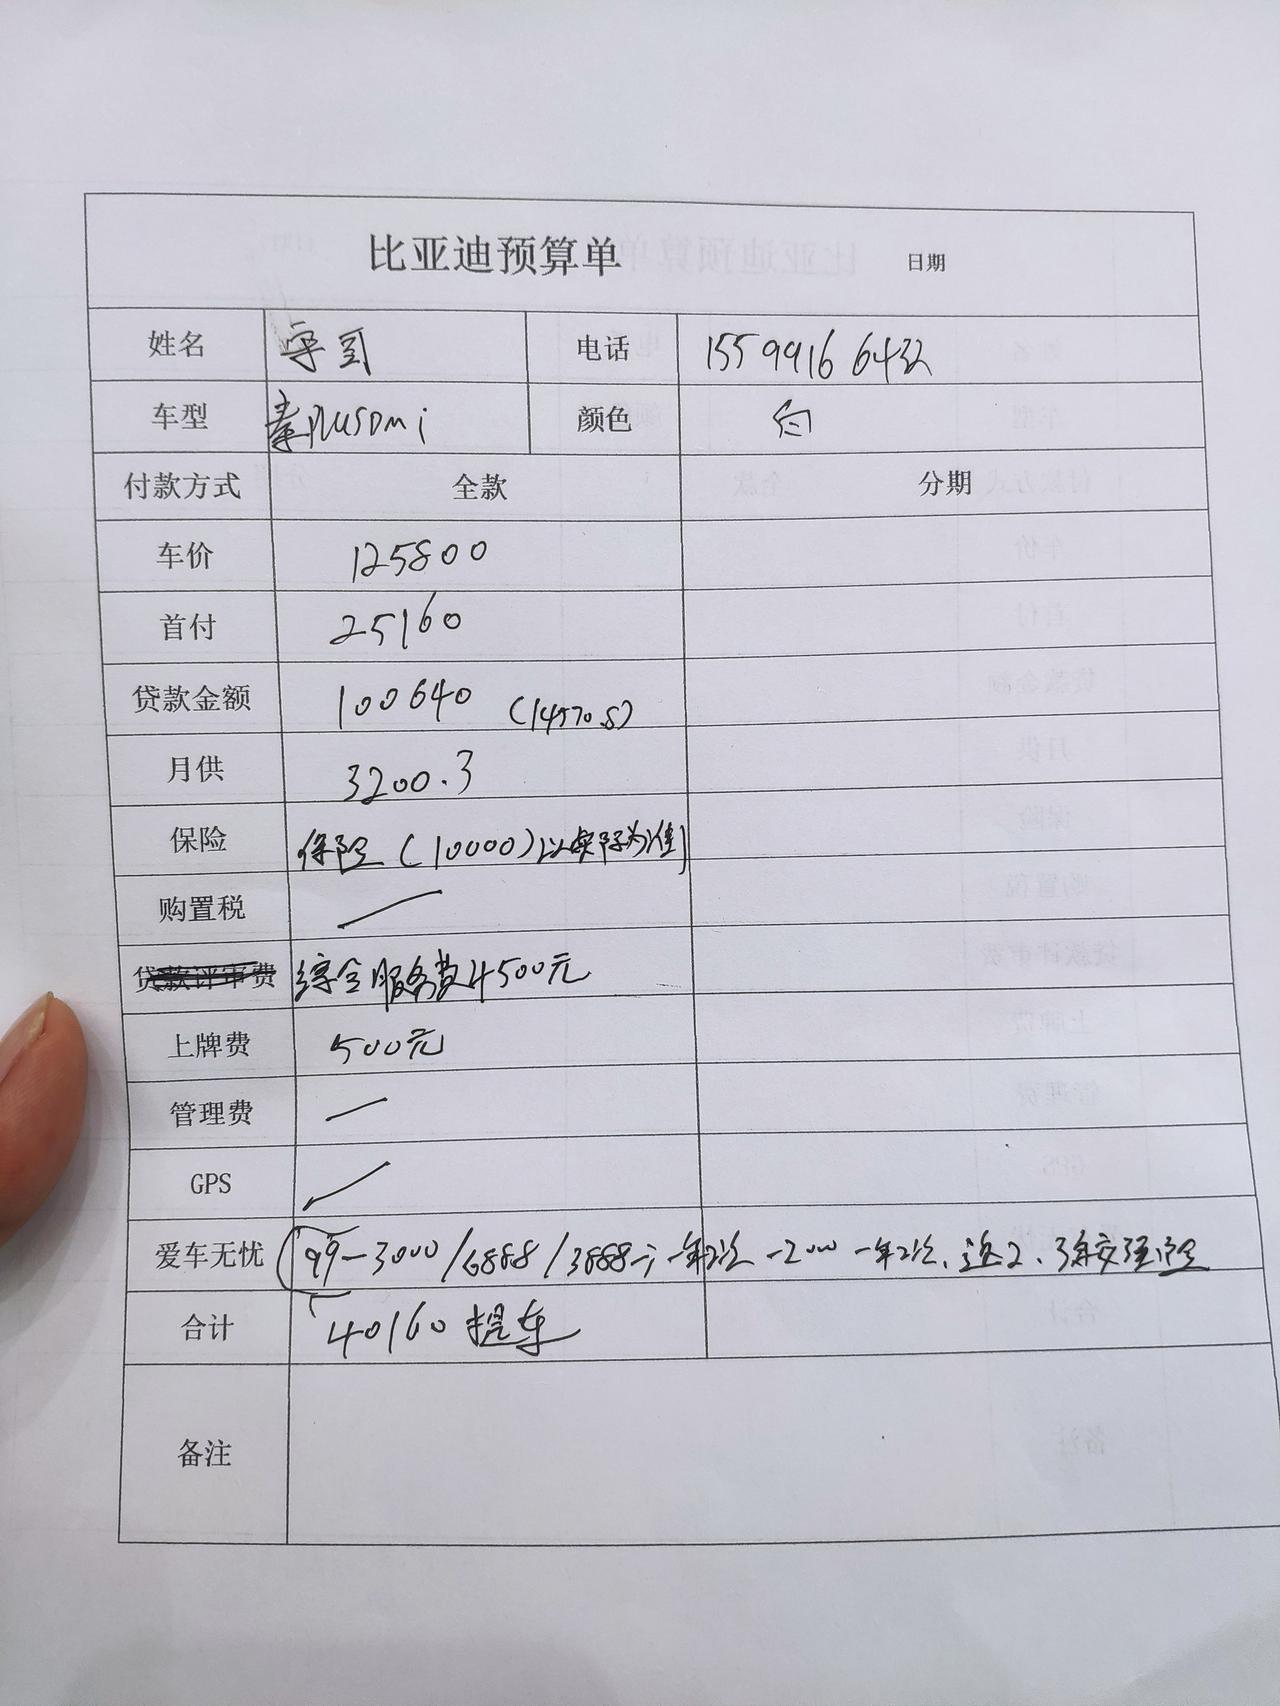 比亚迪预算单 日期
姓名 宁哥 电话 15599166432
车型 秦PLUSDMi 颜色 白
付款方式 全款 分期
车价 125800
首付 25160
贷款金额 100640 (14570.8)
月供 3200.3
保险 保险(10000)以实际为准
购置税
贷款评审费 综合服务费4500元
上牌费 500元
管理费
GPS
爱车无忧 99-3000/6888/3888 一年2次 -2000 一年2次、送2、3年交强险
合计 40160 提车
备注